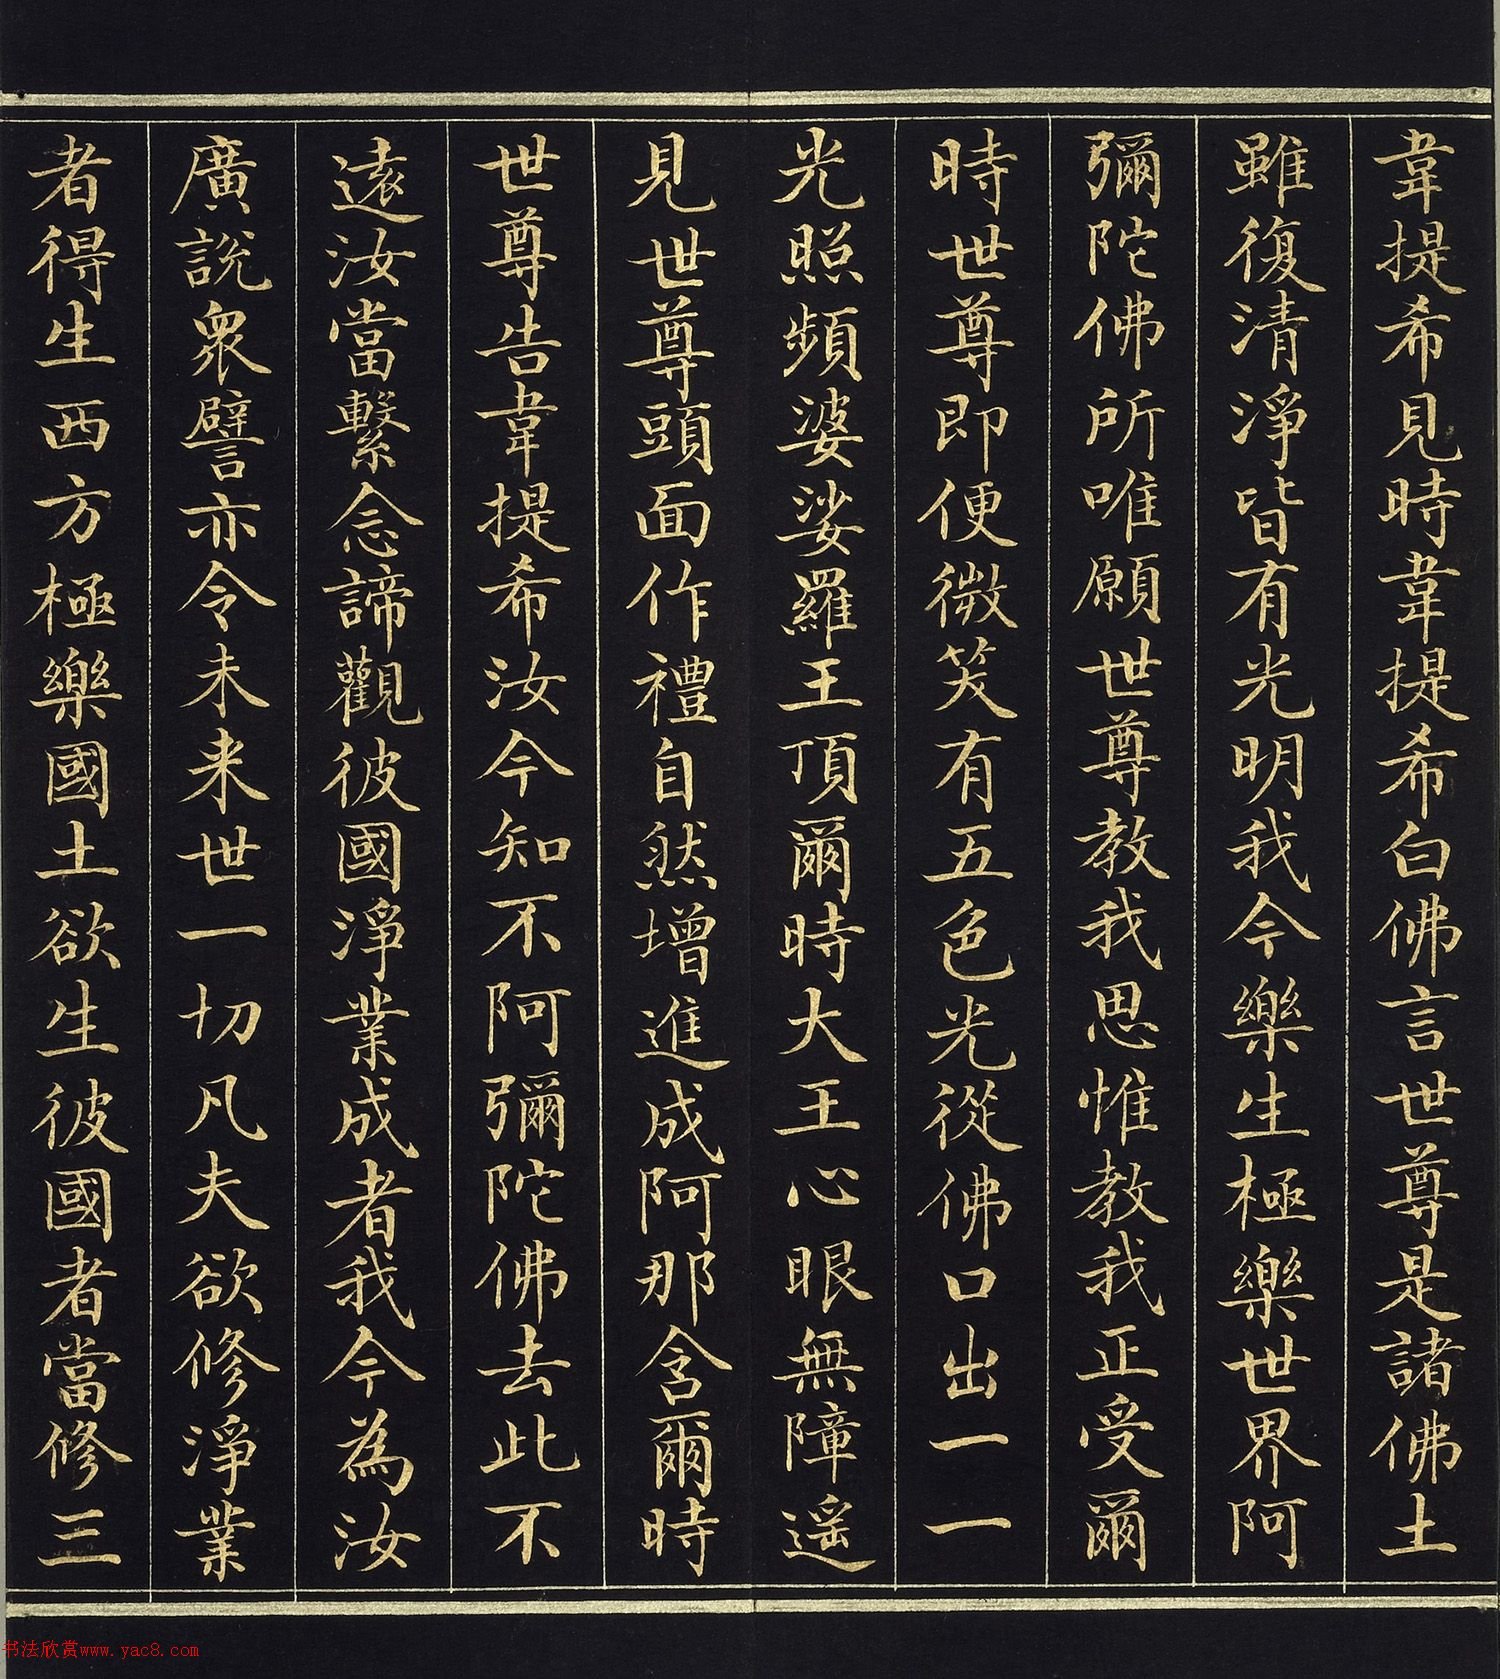 韋提希見時韋提希白佛言世尊是諸佛土
雖復清淨皆有光明我今樂生極樂世界阿
彌陀佛所唯願世尊教我思惟教我正受爾
時世尊即便微笑有五色光從佛口出一一
光照頻婆娑羅王頂爾時大王心眼無障遥
見世尊頭面作禮自然增進成阿那含爾時
世尊告韋提希汝今知不阿彌陀佛去此不
遠汝當繫念諦觀彼國淨業成者我今為汝
廣說眾譬亦令未来世一切凡夫欲修淨業
者得生西方極樂國土欲生彼國者當修三
书法欣赏www.yac8.com